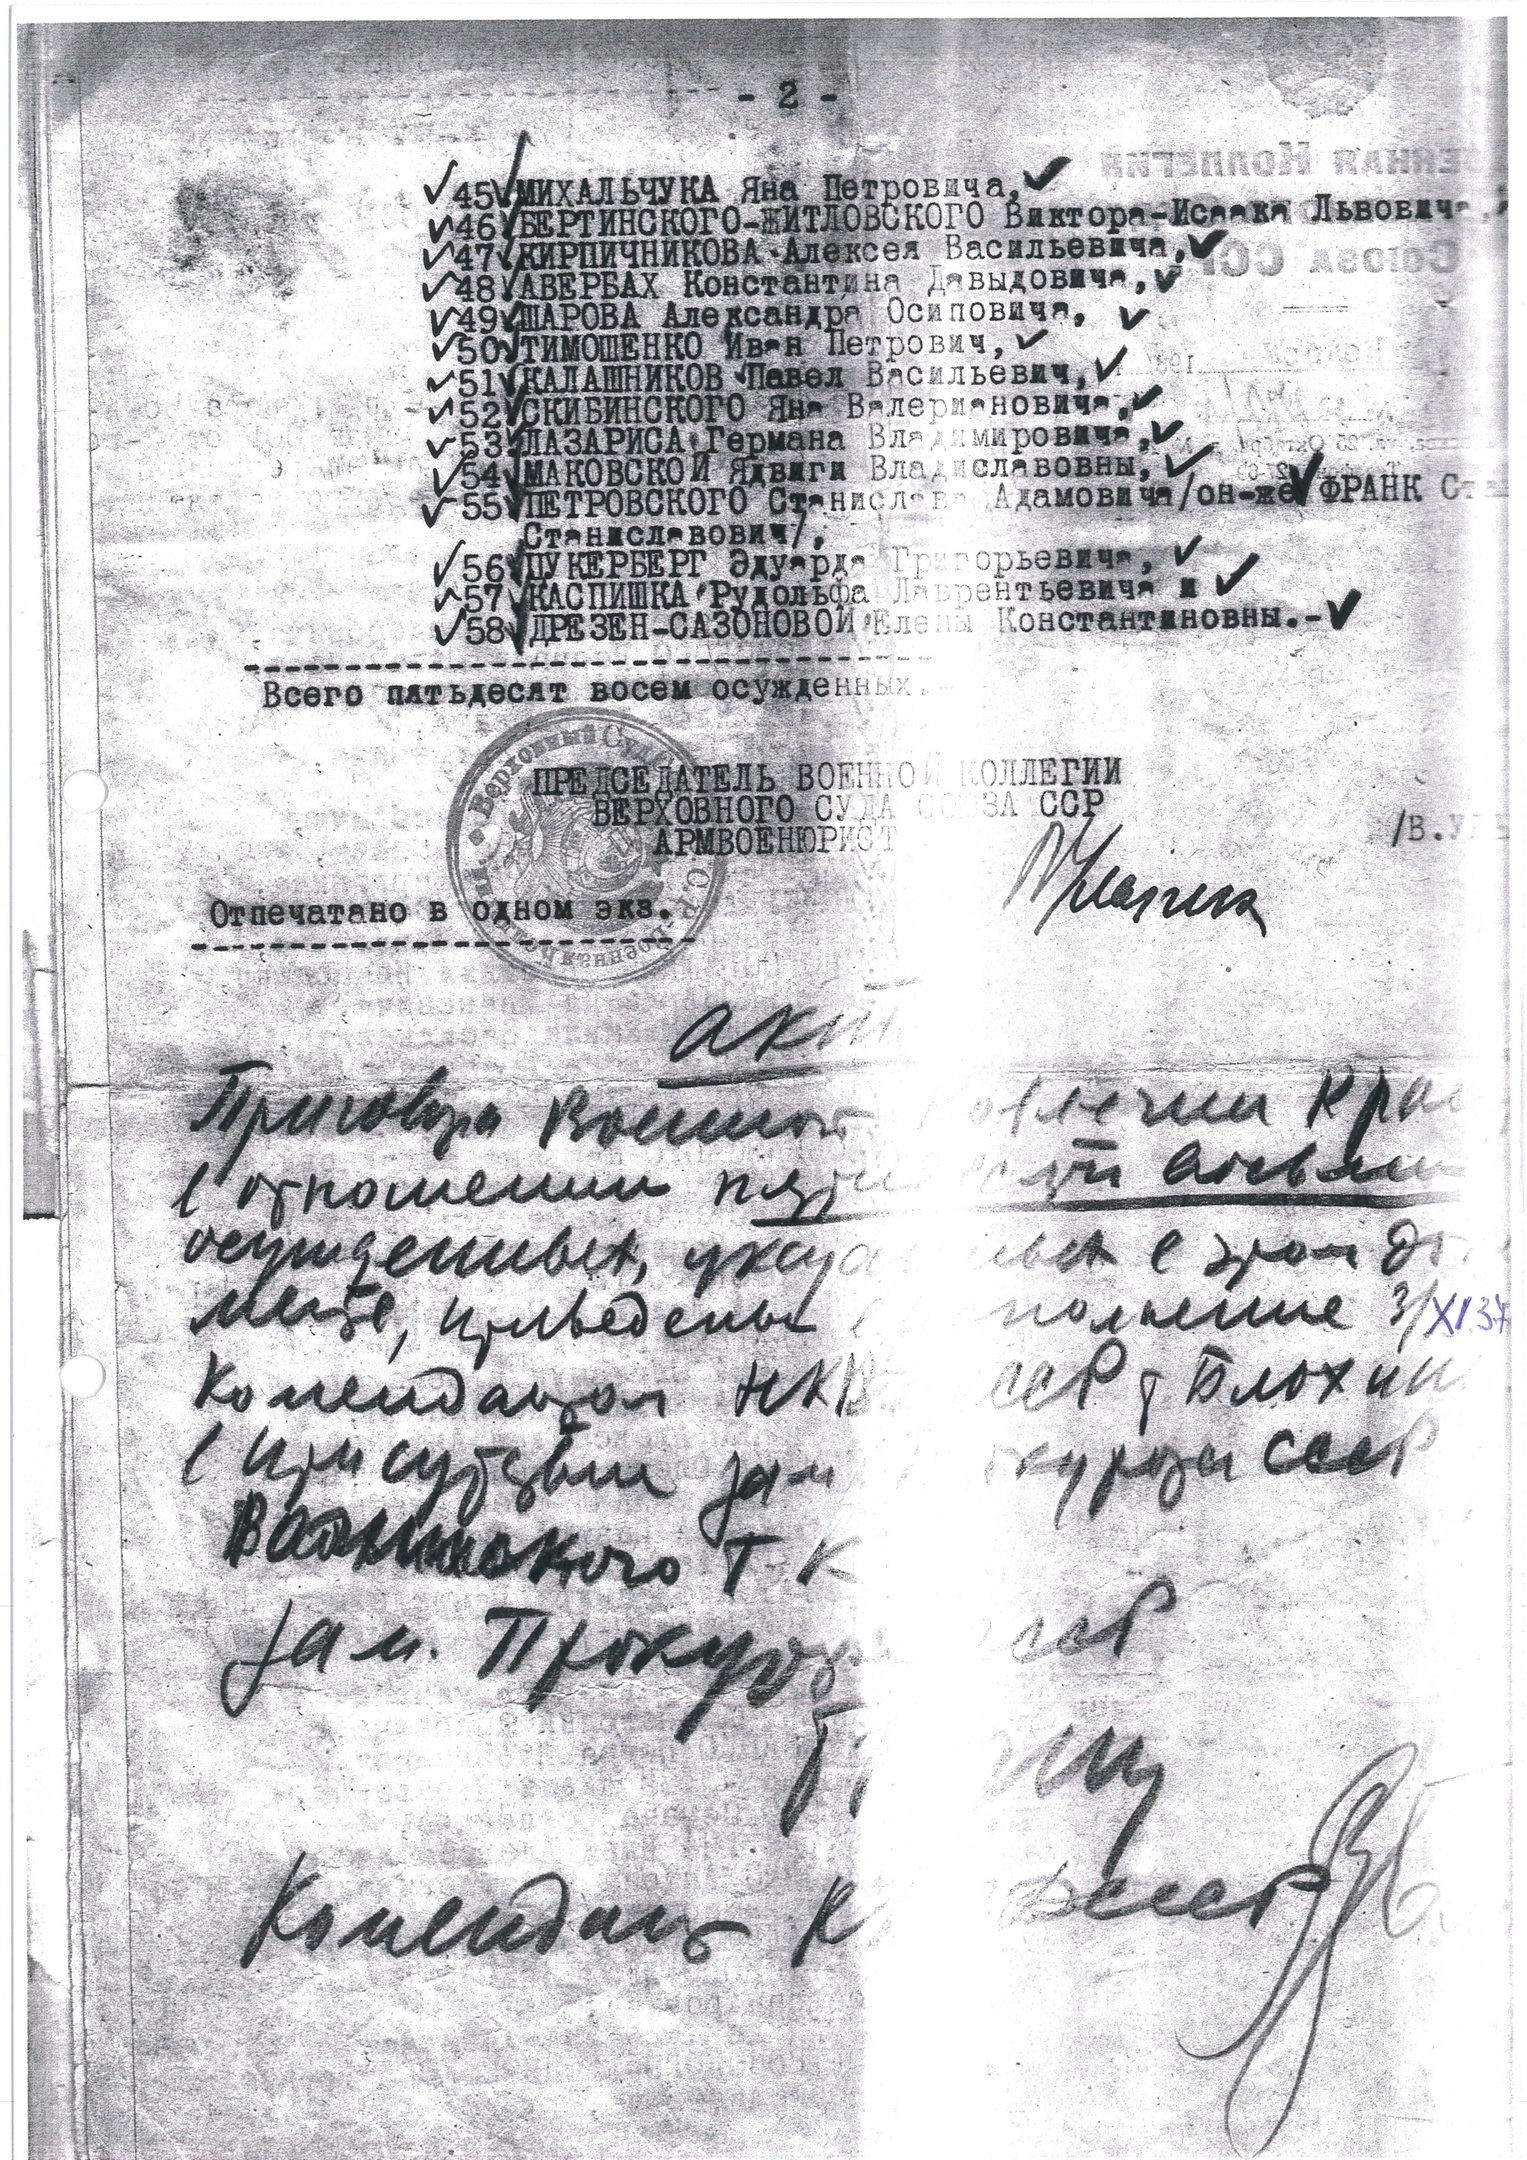 - 2 -
45 МИХАЛЬЧУКА Яна Петровича,
46 БЕРТИНСКОГО-ЖИТЛОВСКОГО Виктора-Исаака Львовича,
47 КИРПИЧНИКОВА Алексея Васильевича,
48 АВЕРБАХ Константина Давыдовича,
49 ШАРОВА Александра Осиповича,
50 ТИМОШЕНКО Иван Петрович,
51 КАЛАШНИКОВ Павел Васильевич,
52 СКИБИНСКОГО Яна Валериановича,
53 ЛАЗАРИСА Германа Владимировича,
54 МАКОВСКОЙ Ядвиги Владиславовны,
55 ПЕТРОВСКОГО Станислава Адамовича/он-же ФРАНК Ста
Станиславович/,
56 ЦУКЕРБЕРГ Эдуарда Григорьевича,
57 КАСПИШКА Рудольфа Лаврентьевича и
58 ДРЕЗЕН-САЗОНОВОЙ Елены Константиновны.-
Всего пятьдесят восем осужденных.
ПРЕДСЕДАТЕЛЬ ВОЕННОЙ КОЛЛЕГИИ
ВЕРХОВНОГО СУДА СОЮЗА ССР
АРМВОЕНЮРИСТ
/В.УЛЬ
Отпечатано в одном экз.
Акт
Приговора Военной Коллегии
в отношении пятидесяти восьми
осужденных, указанных в этом до
менте, приведены в исполнение 3/XI.37
Комендатом НКВД СССР т Блохин
в присутствии зам Прокурора СССР
Т. К
Зам. Прокурора СССР
Комендант НКВД СССР